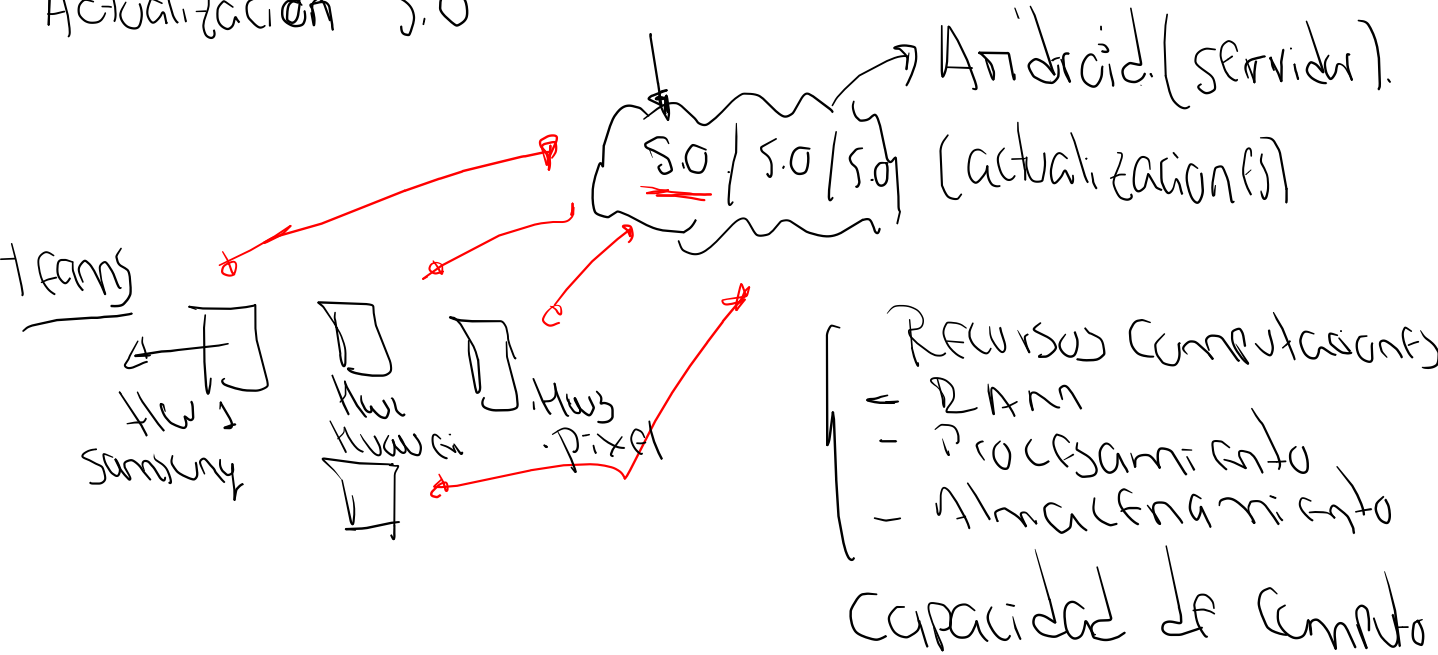 Actualización 5.0
Android (servidor).
5.0 / 5.0 / 5.0
(actualizaciones)
Teams
Hw 1
Samsung
Hw2
Huawei
. Hw3
. Pixel
Recursos Computaciones
- RAM
- Procesamiento
- Almacenamiento
Capacidad de Computo